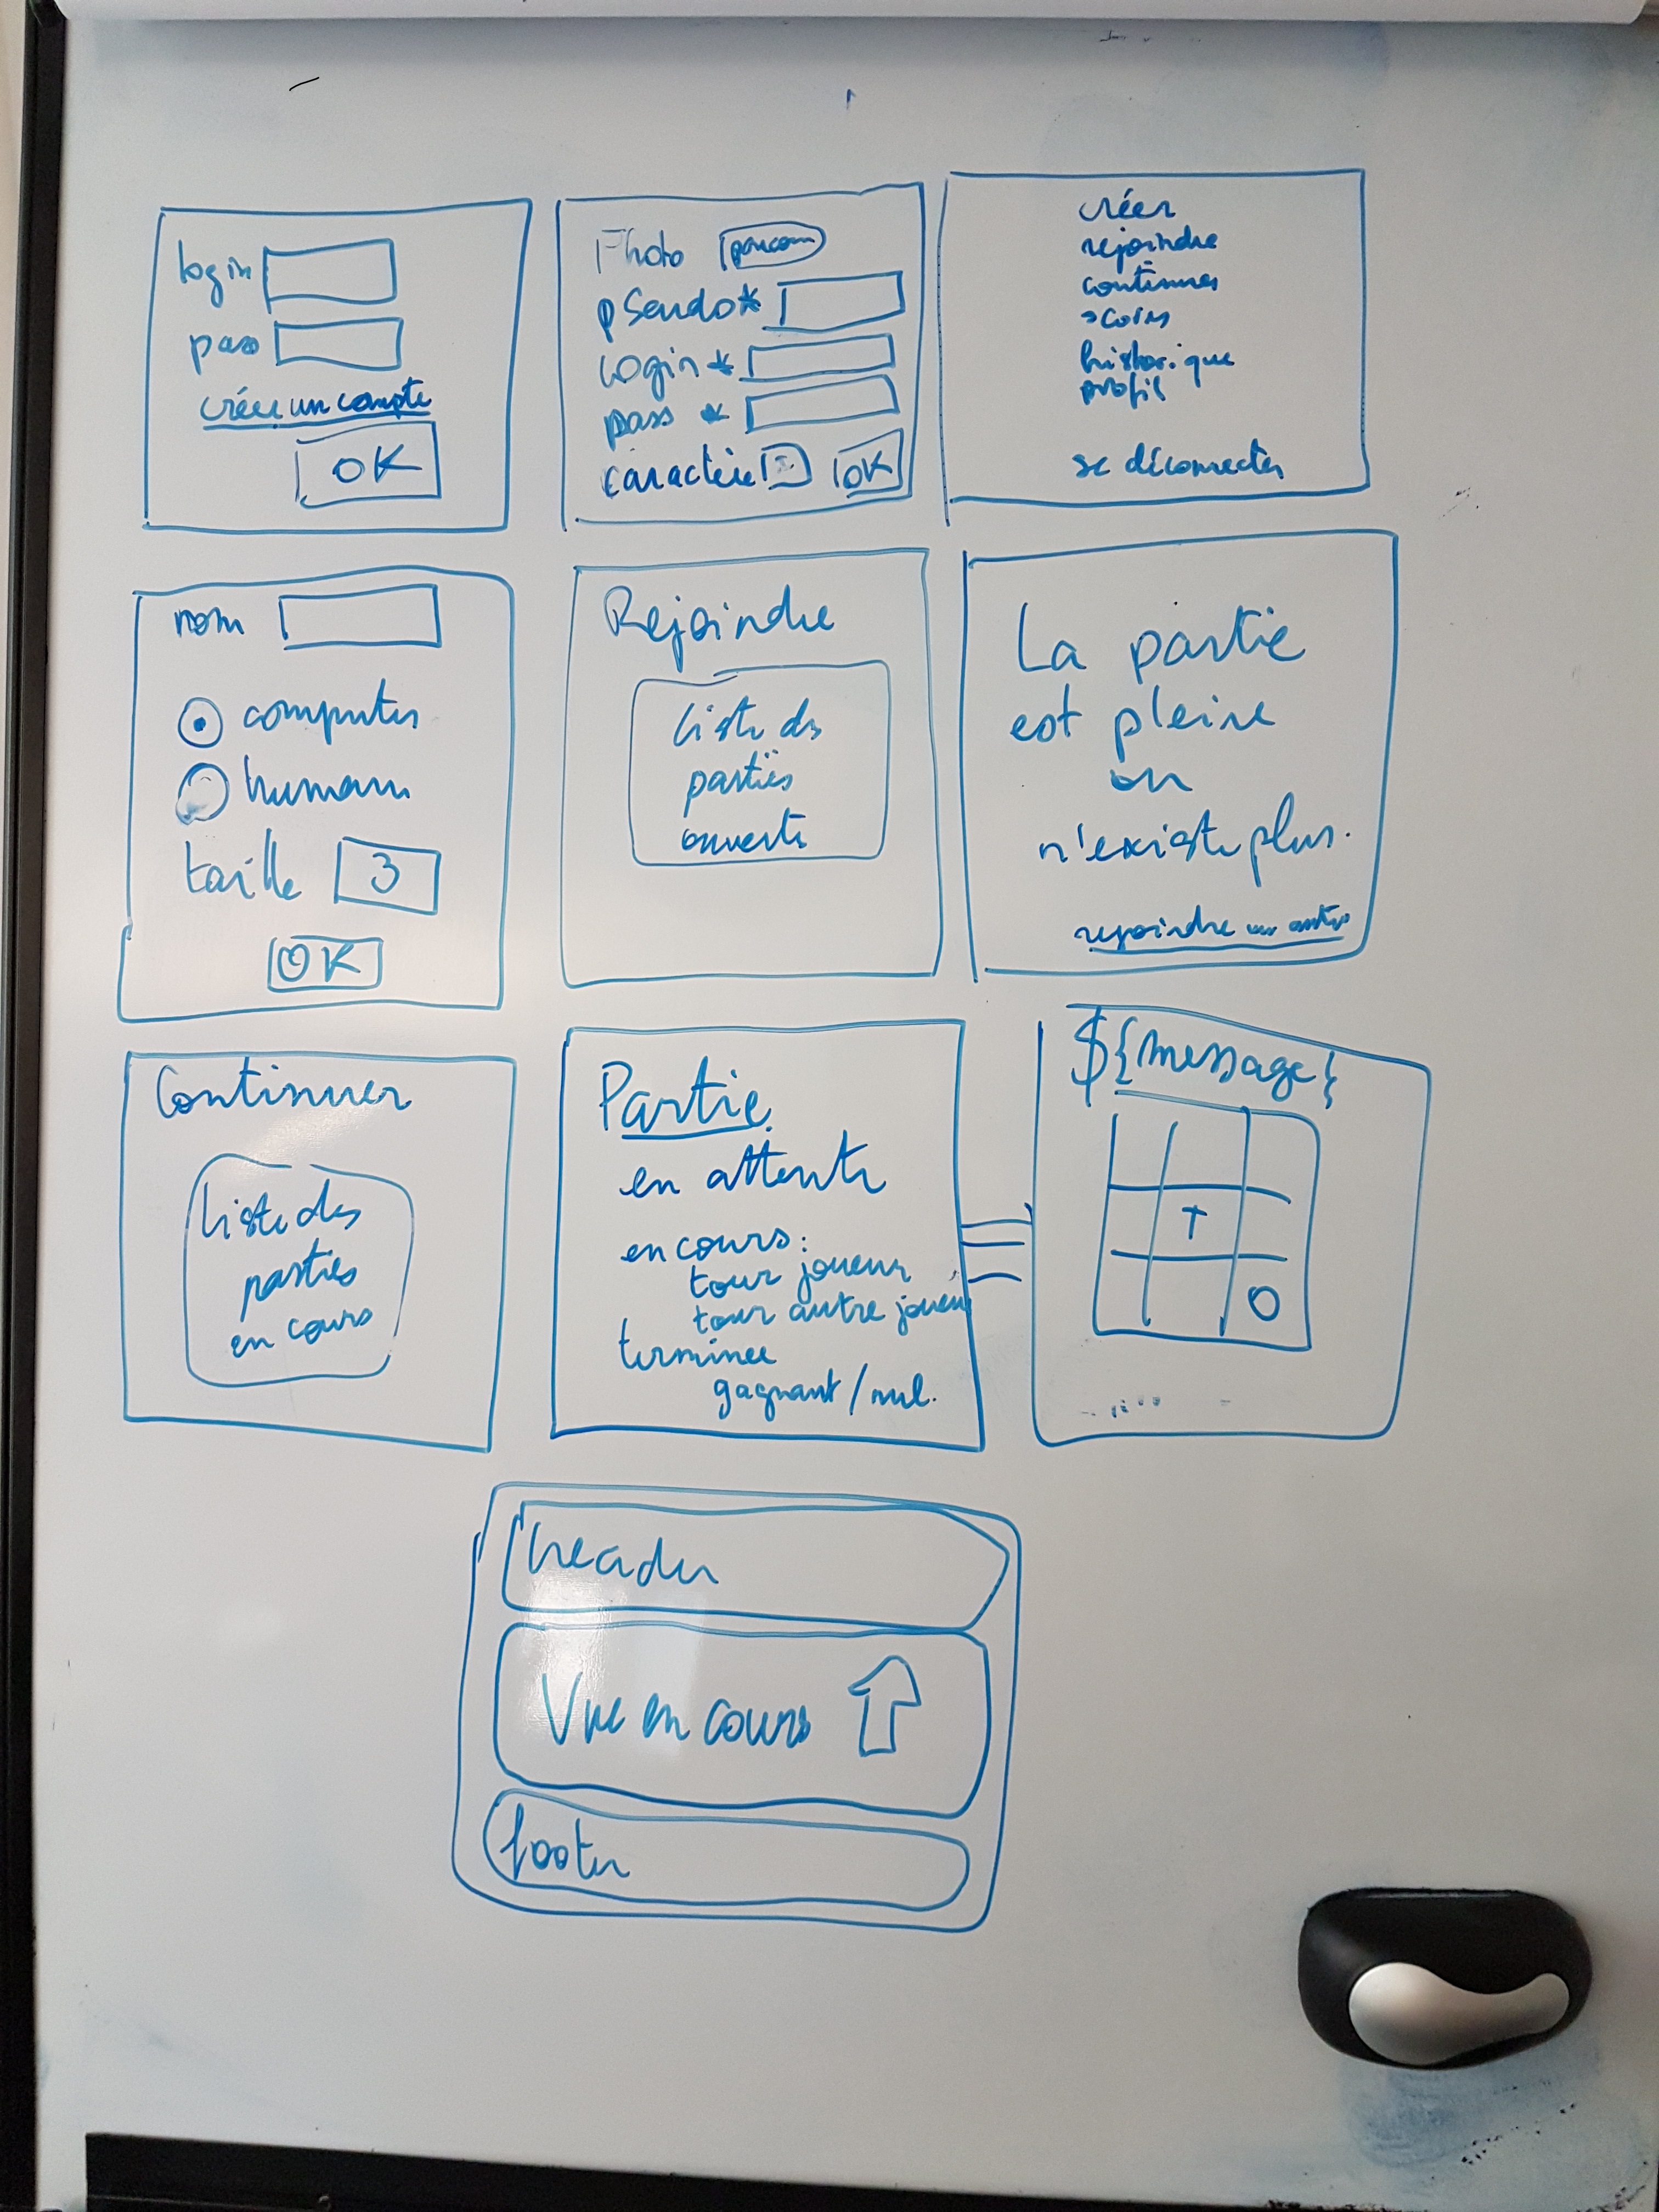 login
pass
créer un compte
OK
Photo parcourir
pseudo*
login *
pass *
caractère
OK
créer
rejoindre
continuer
scores
historique
profil
se déconnecter
nom
computer
humain
taille 3
OK
Rejoindre
liste des
parties
ouvertes
La partie
est pleine
ou
n'existe plus.
rejoindre un autre
Continuer
Liste des
parties
en cours
Partie
en attente
en cours:
tour joueur
tour autre joueur
terminee
gagnant / nul.
${message}
T
O
header
Vue en cours
footer